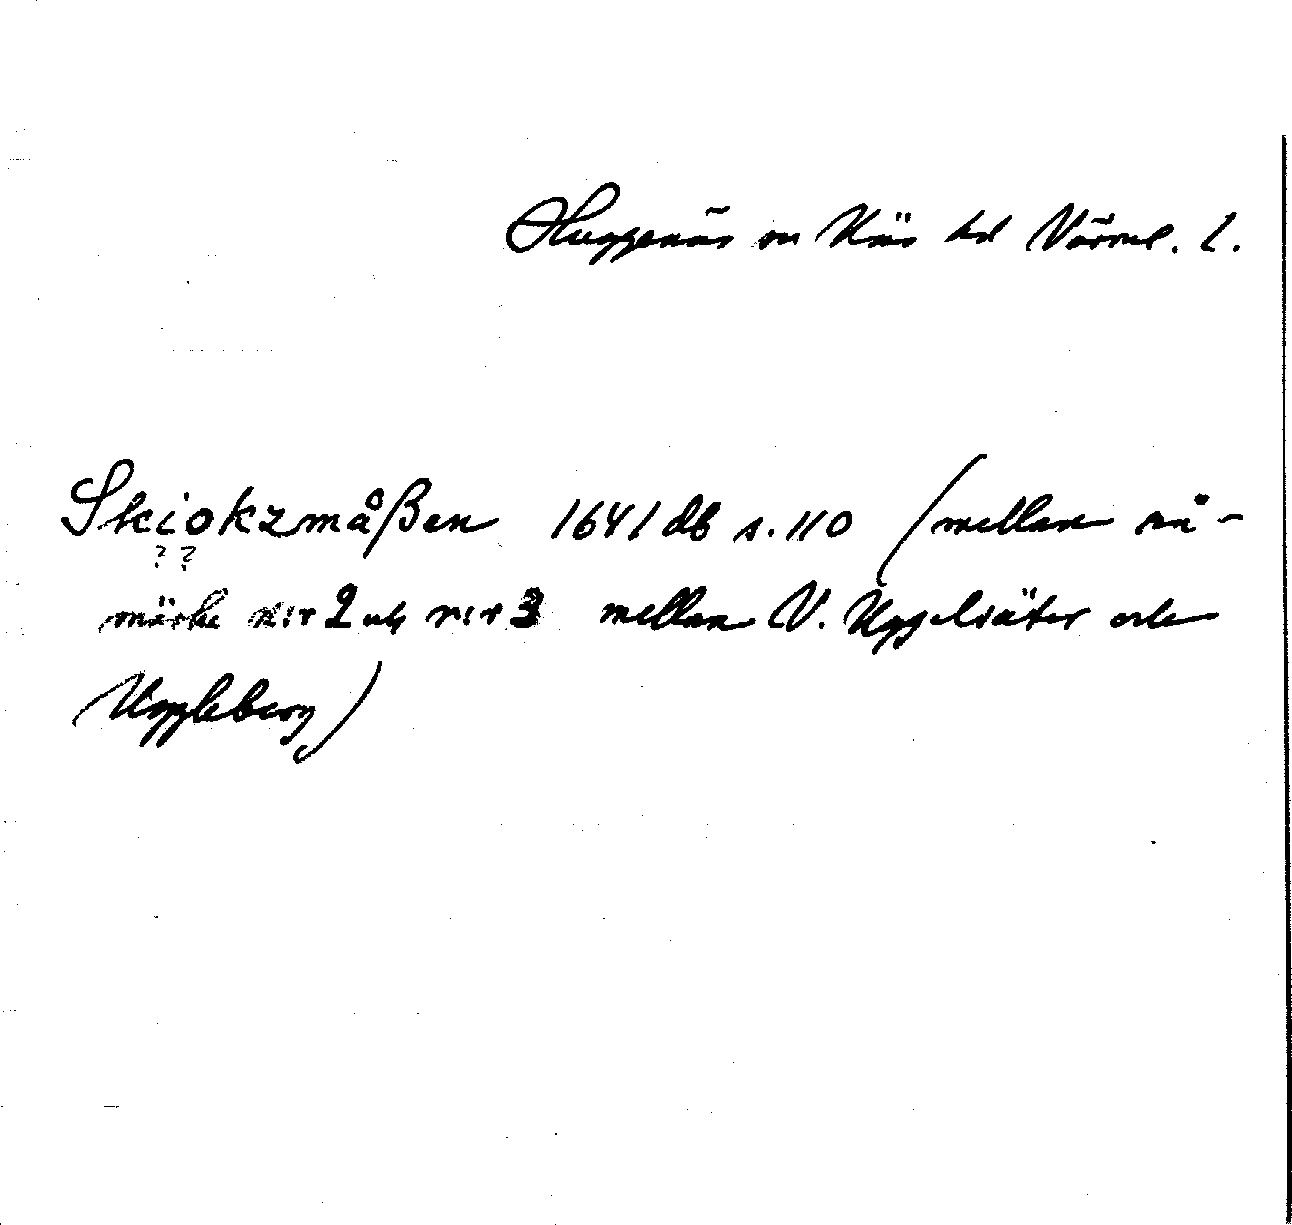 Huggenäs sn Näs hd Värml. l.
Skiokzmåßen 1641 db s. 110 (mellan rå-
? ?
märke n:r 2 och n:r 3 mellan V. Uggelsäter och
Uggleberg)